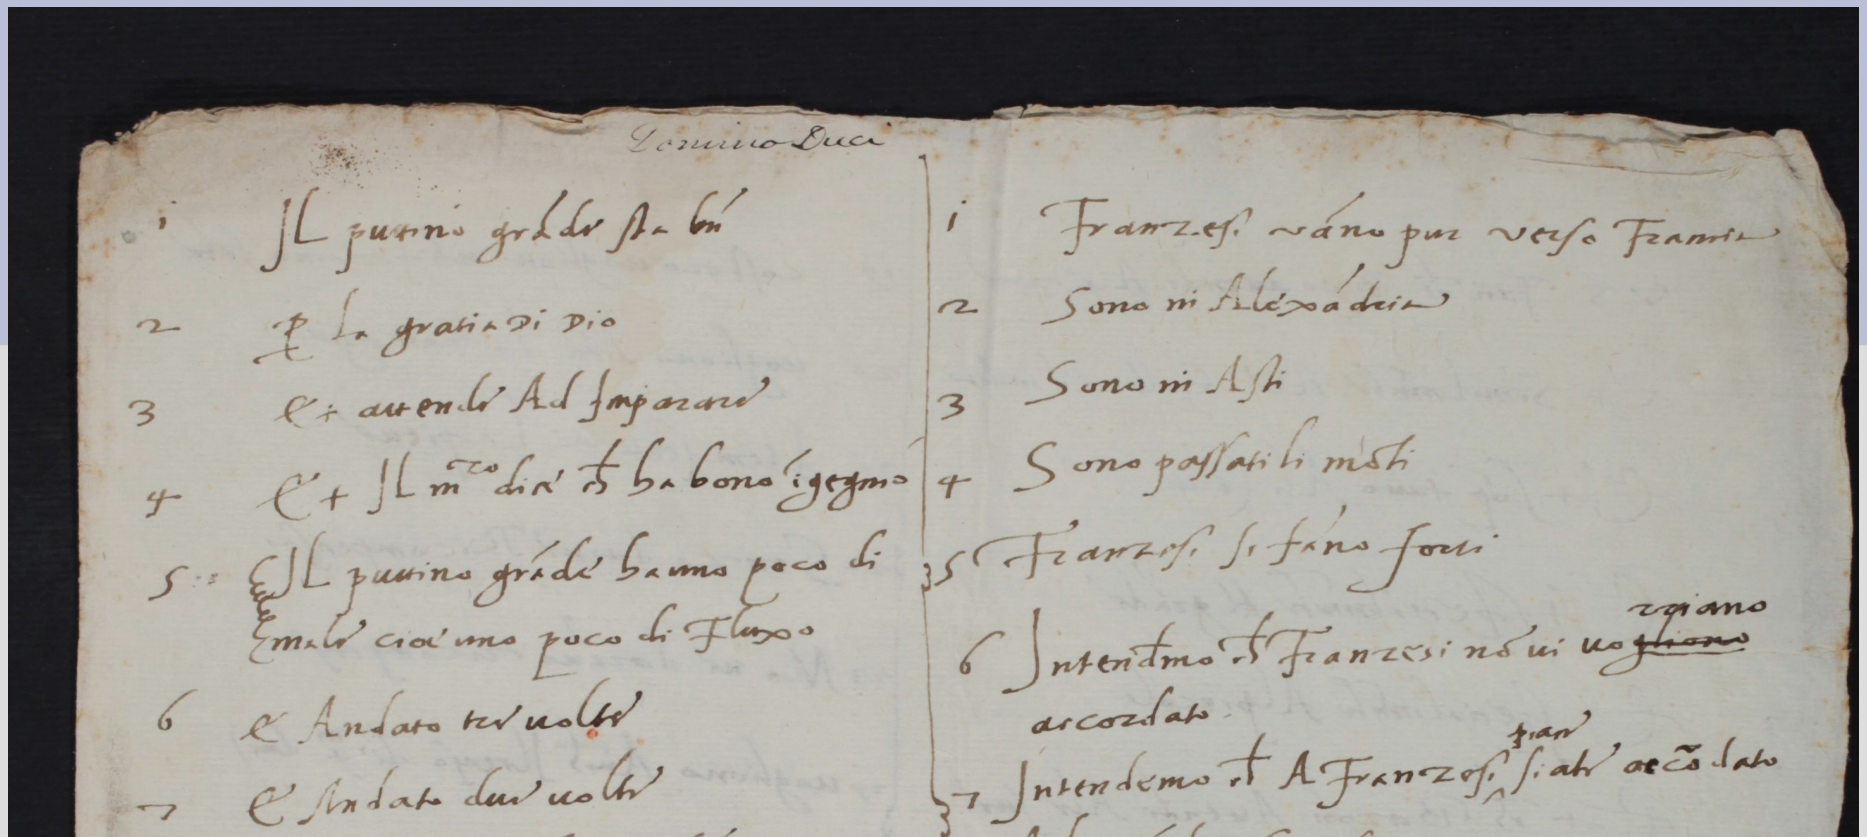 Domino Duci
1 Il puttino grāde sta bn̄
2 ꝑ la gratia Di Dio
3 Et attende Ad Imparare
4 Et Il mro dice ch̄ ha bono īgegnio
5 Il puttino grāde ha uno poco di
male cioe uno poco di Fluxo
6 E Andato tre uolte
7 E Andato due uolte
1 Franzesi vāno pur verso
2 Sono in Alexādria
3 Sono in Asti
4 Sono passati li mōti
5 Franzesi si fāno forti
6 Intend̄mo ch̄ Franzesi nō ui uogliono
accordato
7 Intendemo ch̄ A Franzesi siate accōdato